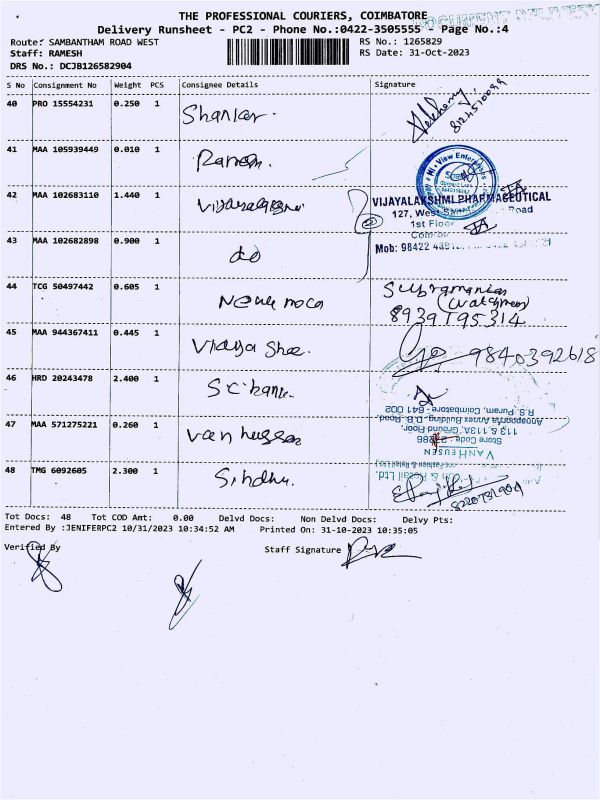 THE PROFESSIONAL COURIERS, COIMBATORE
Delivery Runsheet - PC2 - Phone No.:0422-3505555 - Page No.:4
Route: SAMBANTHAM ROAD WEST
Staff: RAMESH
DRS No.: DCJB126582904
RS No.: 1265829
RS Date: 31-Oct-2023
S No Consignment No Weight PCS Consignee Details Signature
40 PRO 15554231 0.250 1 Shankar.
8124510099
41 MAA 105939449 0.010 1
View Enterprises
42 MAA 102683110 1.440 1
VIJAYALAKSHMI PHARMACEUTICAL
127, West Road
1st Floor
43 MAA 102682898 0.900 1 do
Mob: 98422
44 TCG 50497442 0.605 1
Subramanian
(Watchmen)
8939195314
45 MAA 944367411 0.445 1 Vidya Shee.
9840392618
46 HRD 20243478 2.400 1
R.S. Puram, Coimbatore - 641 002
Annexe Building, D.B. Road,
113 & 113A, Ground Floor,
47 MAA 571275221 0.260 1 Van heusen
Store Code
VAN HEUSEN
48 TMG 6092605 2.300 1 Sindhu.
Retail Ltd.
Tot Docs: 48 Tot COD Amt: 0.00 Delvd Docs: Non Delvd Docs: Delvy Pts:
Entered By :JENIFERPC2 10/31/2023 10:34:52 AM Printed On: 31-10-2023 10:35:05
Verified By Staff Signature